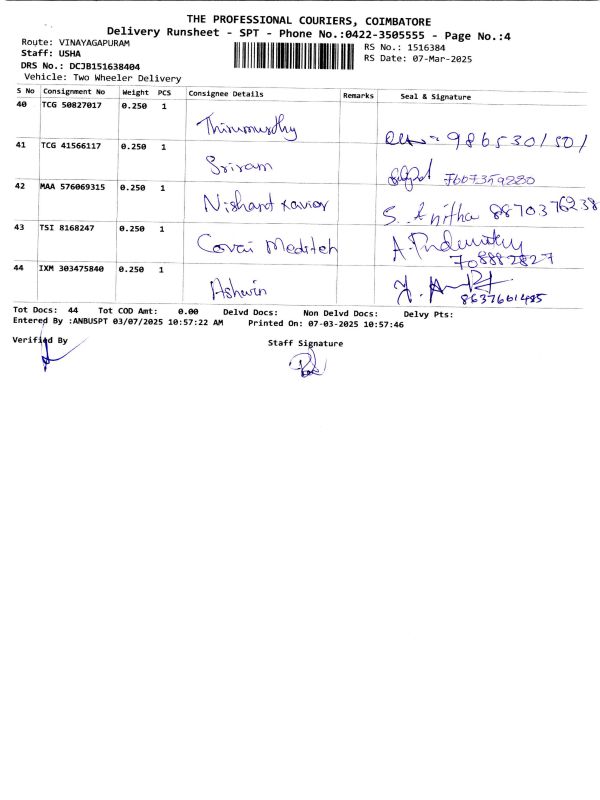 THE PROFESSIONAL COURIERS, COIMBATORE
Delivery Runsheet - SPT - Phone No.:0422-3505555 - Page No.:4
Route: VINAYAGAPURAM RS No.: 1516384
Staff: USHA RS Date: 07-Mar-2025
DRS No.: DCJB151638404
Vehicle: Two Wheeler Delivery
S No Consignment No Weight PCS Consignee Details Remarks Seal & Signature
40 TCG 50827017 0.250 1
Thirumurthy 9865301501
41 TCG 41566117 0.250 1
Sriram 7667359280
42 MAA 576069315 0.250 1
Nishant xavior S. Anitha 8870376238
43 TSI 8168247 0.250 1
Covai Meditech A.
708882827
44 IXM 303475840 0.250 1
Ashwin
8637661485
Tot Docs: 44 Tot COD Amt: 0.00 Delvd Docs: Non Delvd Docs: Delvy Pts:
Entered By :ANBUSPT 03/07/2025 10:57:22 AM Printed On: 07-03-2025 10:57:46
Verified By Staff Signature